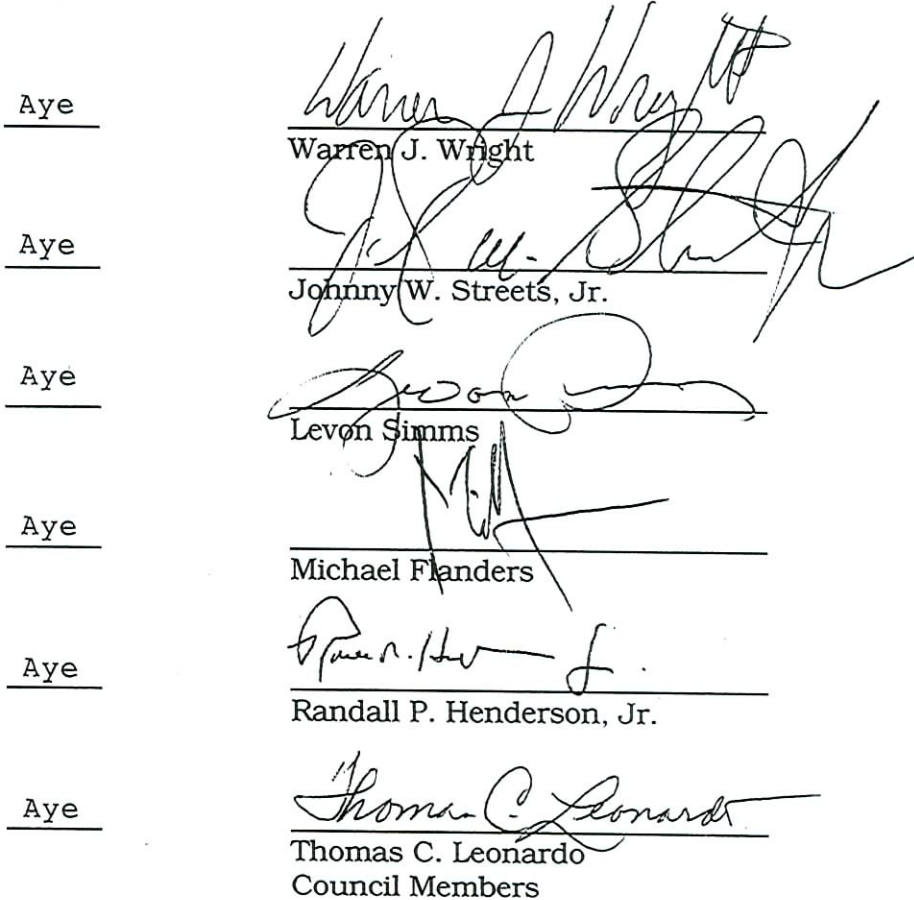 Aye
Warren J. Wright
Warren J. Wright
Aye
Johnny W. Streets, Jr.
Aye
Levon Simms
Levon Simms
Aye
Michael Flanders
Aye
Randall P. Henderson, Jr.
Aye
Thomas C. Leonardo
Thomas C. Leonardo
Council Members